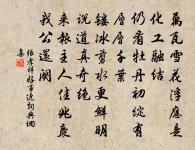 萬瓦雪花浮應是
化工融結
仍看牡丹初綻有
層層千葉
鏤冰剪水更鮮明
說道真奇絕
來報主人佳兆慶
我公還闕
張孝祥好事近詞典網
集